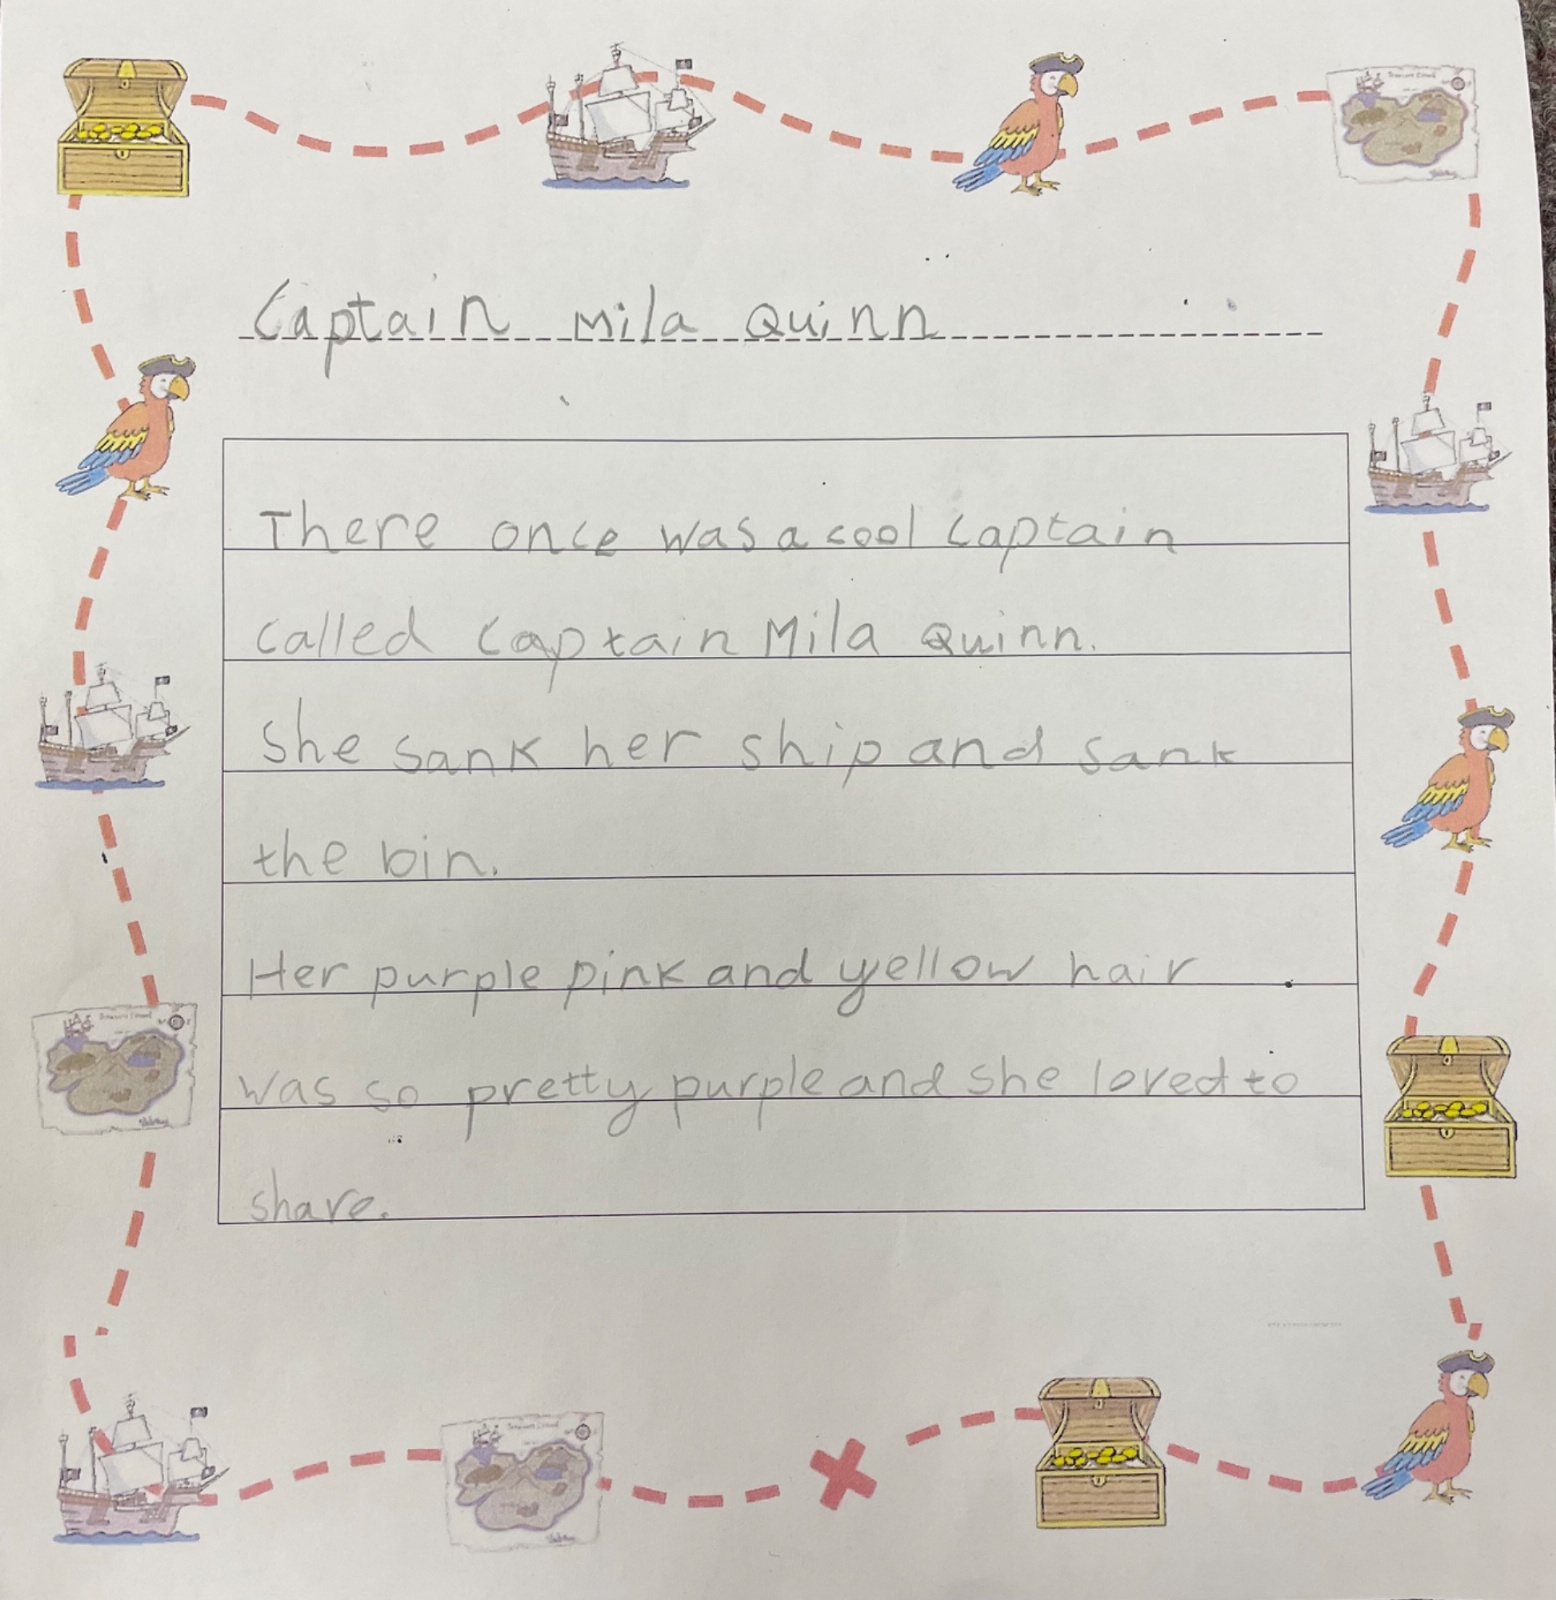 Captain Mila Quinn
There once was a cool Captain
called Captain Mila Quinn.
She sank her ship and sank
the bin.
Her purple pink and yellow hair
was so pretty purple and she loved to
share.